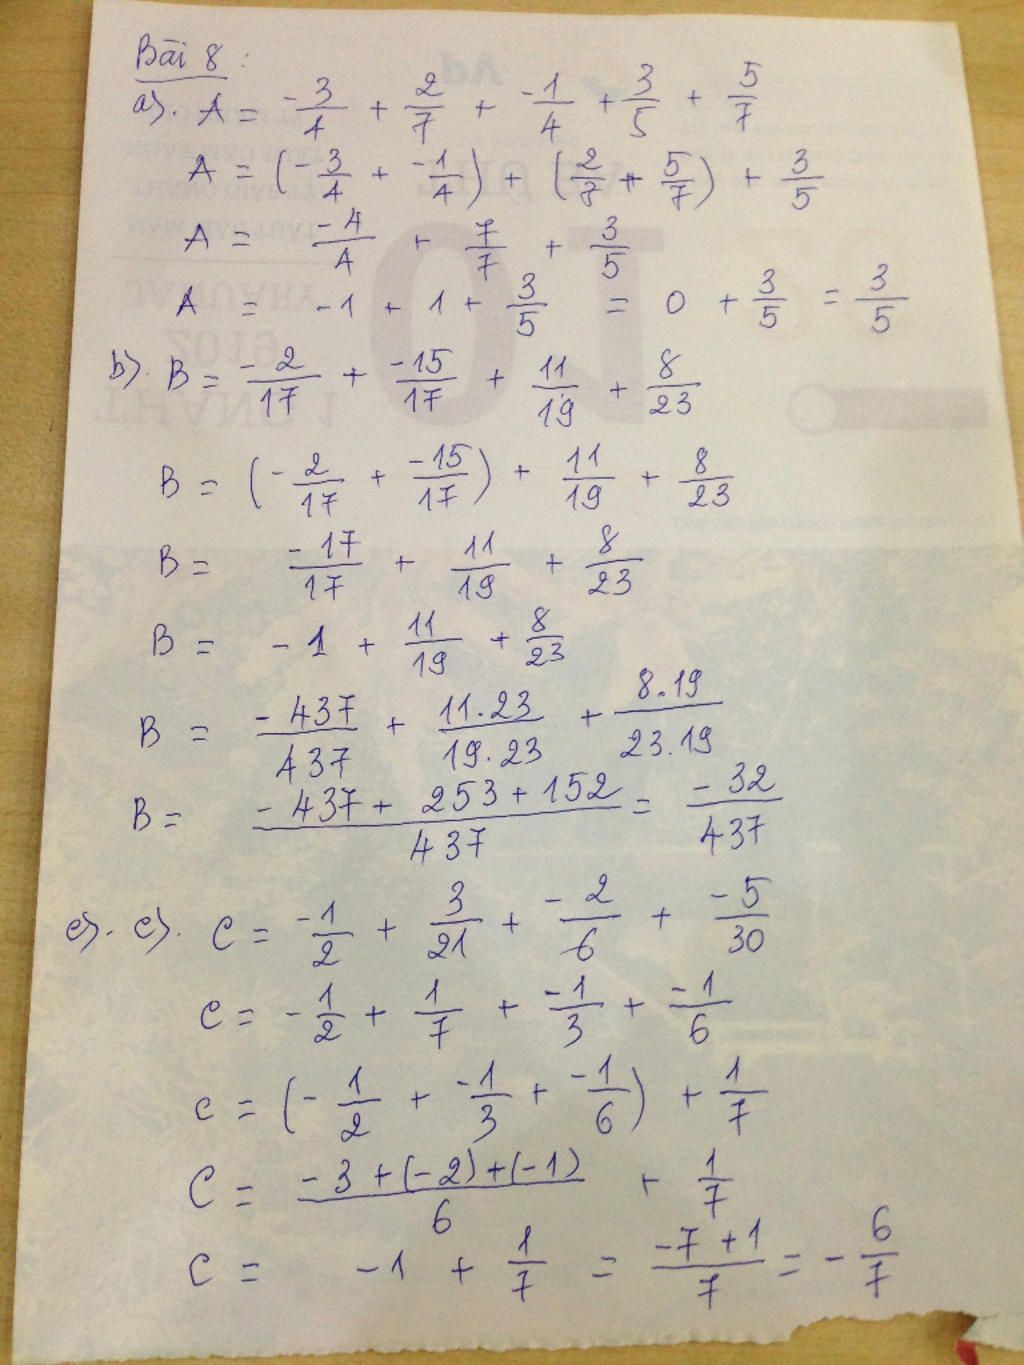 Bài 8 :
a). A = -3/4 + 2/7 + -1/4 + 3/5 + 5/7
A = (-3/4 + -1/4) + (2/7 + 5/7) + 3/5
A = -4/4 + 7/7 + 3/5
A = -1 + 1 + 3/5 = 0 + 3/5 = 3/5
b). B = -2/17 + -15/17 + 11/19 + 8/23
B = (-2/17 + -15/17) + 11/19 + 8/23
B = -17/17 + 11/19 + 8/23
B = -1 + 11/19 + 8/23
B = -437/437 + 11.23/19.23 + 8.19/23.19
B = -437 + 253 + 152/437 = -32/437
c). c). C = -1/2 + 3/21 + -2/6 + -5/30
C = -1/2 + 1/7 + -1/3 + -1/6
C = (-1/2 + -1/3 + -1/6) + 1/7
C = -3 + (-2) + (-1)/6 + 1/7
C = -1 + 1/7 = -7 + 1/7 = -6/7